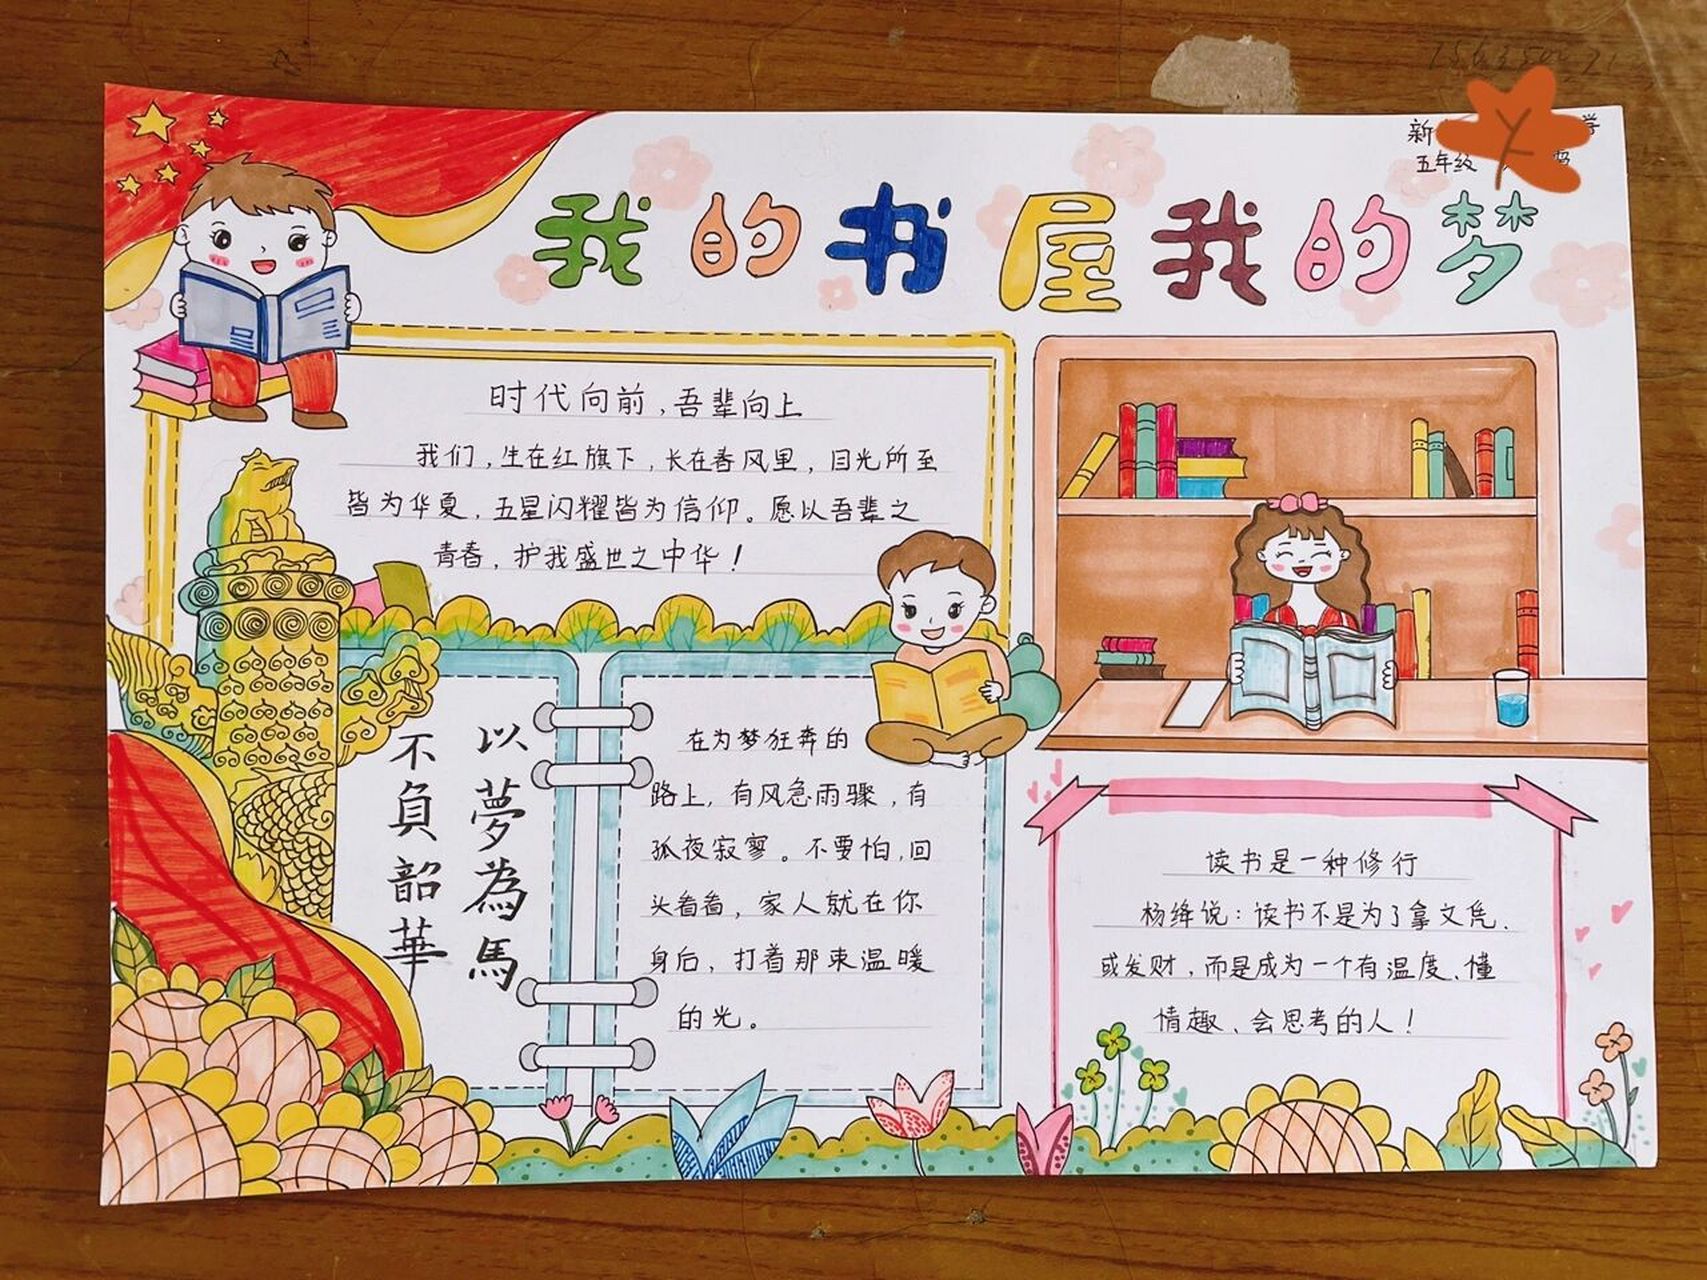 新
学
五年级
我的书屋我的梦
时代向前,吾辈向上
我们,生在红旗下,长在春风里,目光所至
皆为华夏,五星闪耀皆为信仰。愿以吾辈之
青春,护我盛世之中华!
以夢為馬
不負韶華
在为梦狂奔的
路上,有风急雨骤,有
孤夜寂寥。不要怕,回
头看看,家人就在你
身后,打着那束温暖
的光。
读书是一种修行
杨绛说:读书不是为了拿文凭.
或发财,而是成为一个有温度、懂
情趣、会思考的人!